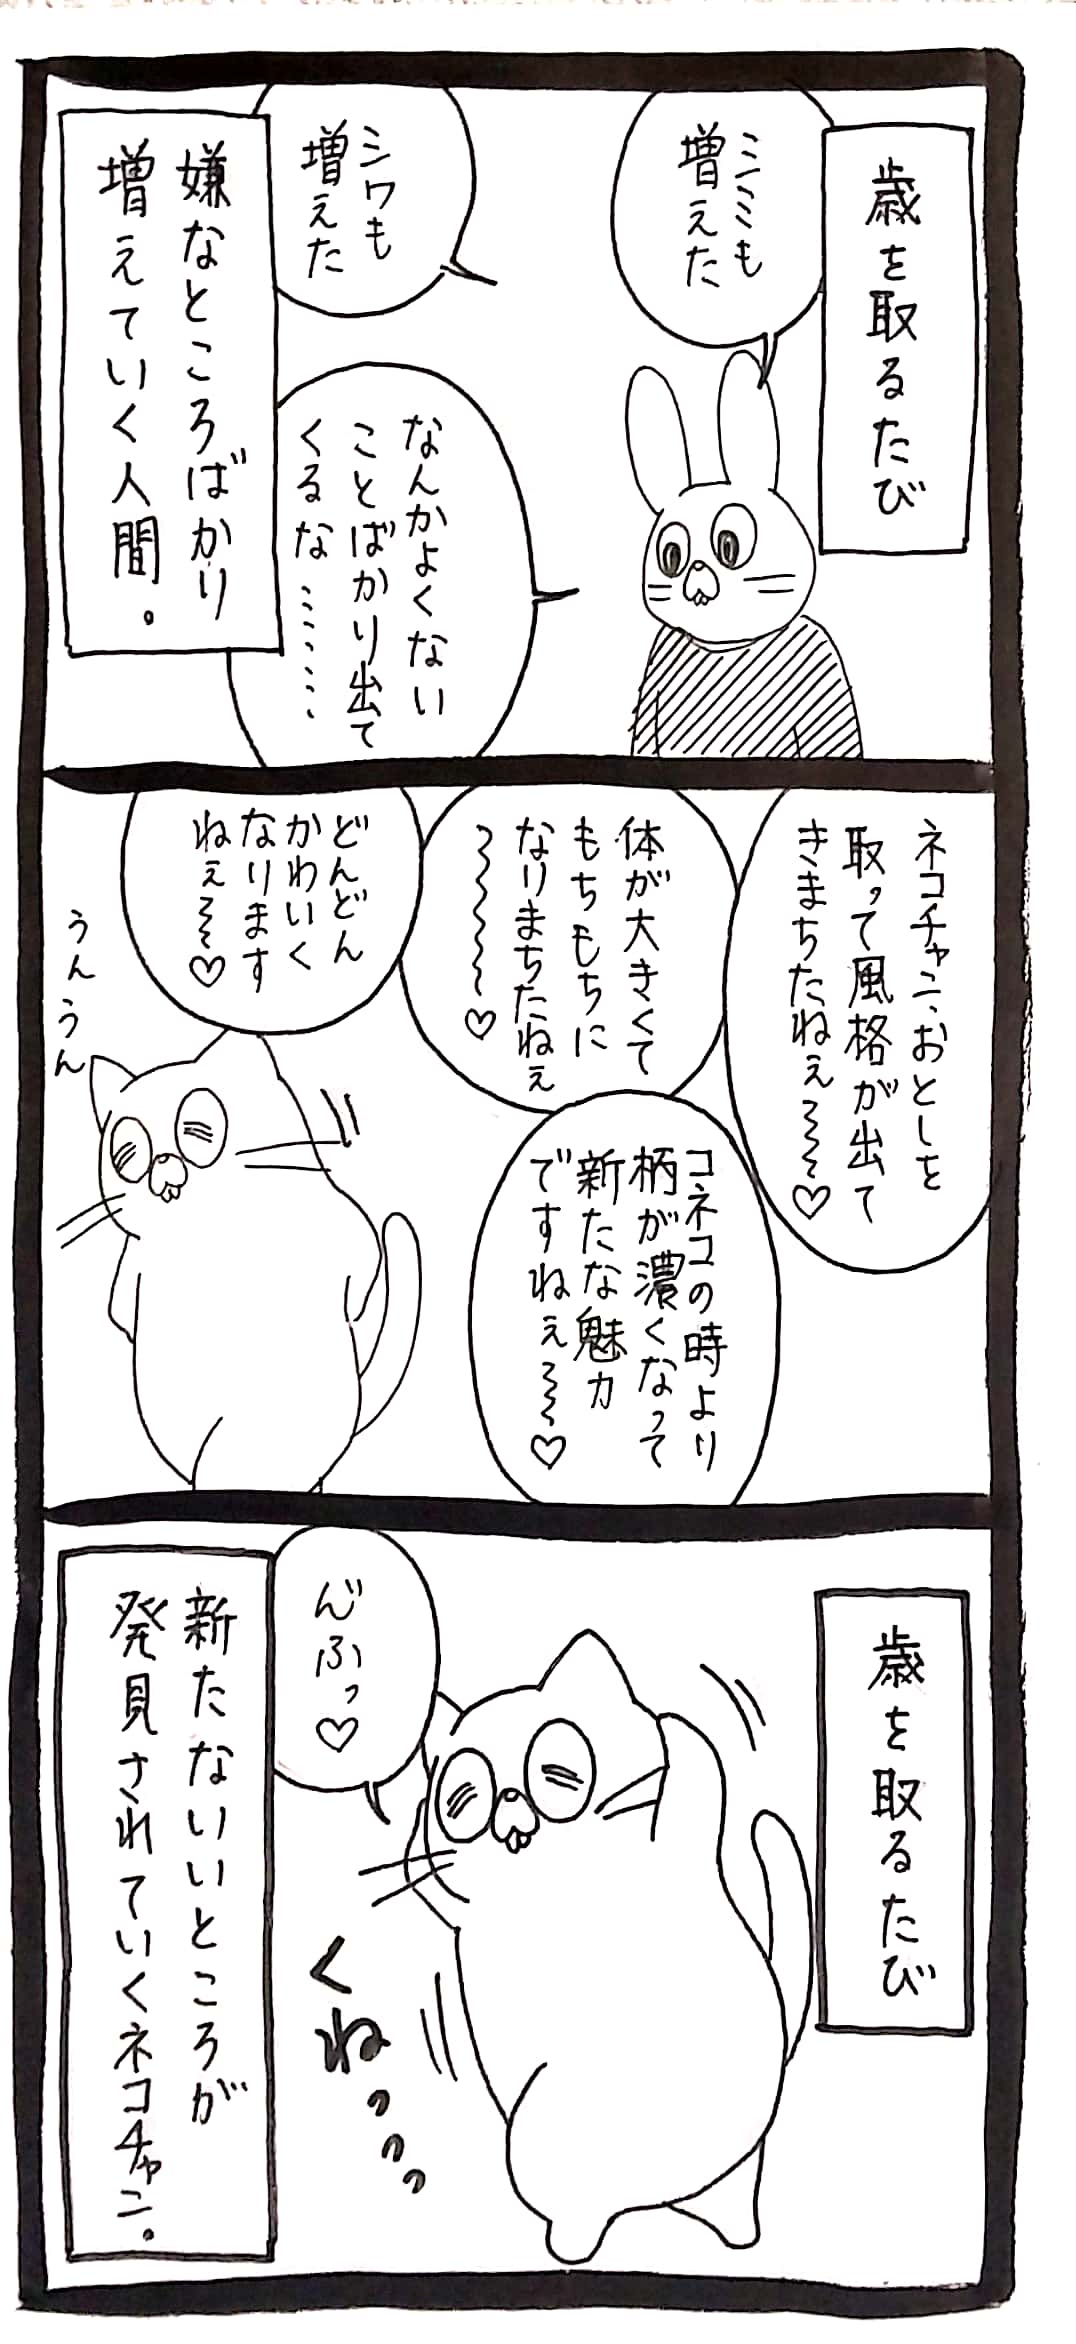 歳を取るたび
シミも
増えた
シワも
増えた
なんかよくない
ことばかり出て
くるな……
嫌なところばかり
増えていく人間。
ネコチャン、おとしを
取って風格が出て
きまちたねぇ〜〜♡
体が大きくて
もちもちに
なりまちたねぇ
〜〜〜〜♡
コネコの時より
柄が濃くなって
新たな魅力
ですねぇ〜〜♡
どんどん
かわいく
なります
ねぇ〜〜♡
うんうん
歳を取るたび
んふっ♡
くねっっっ
新たないいところが
発見されていくネコチャン。